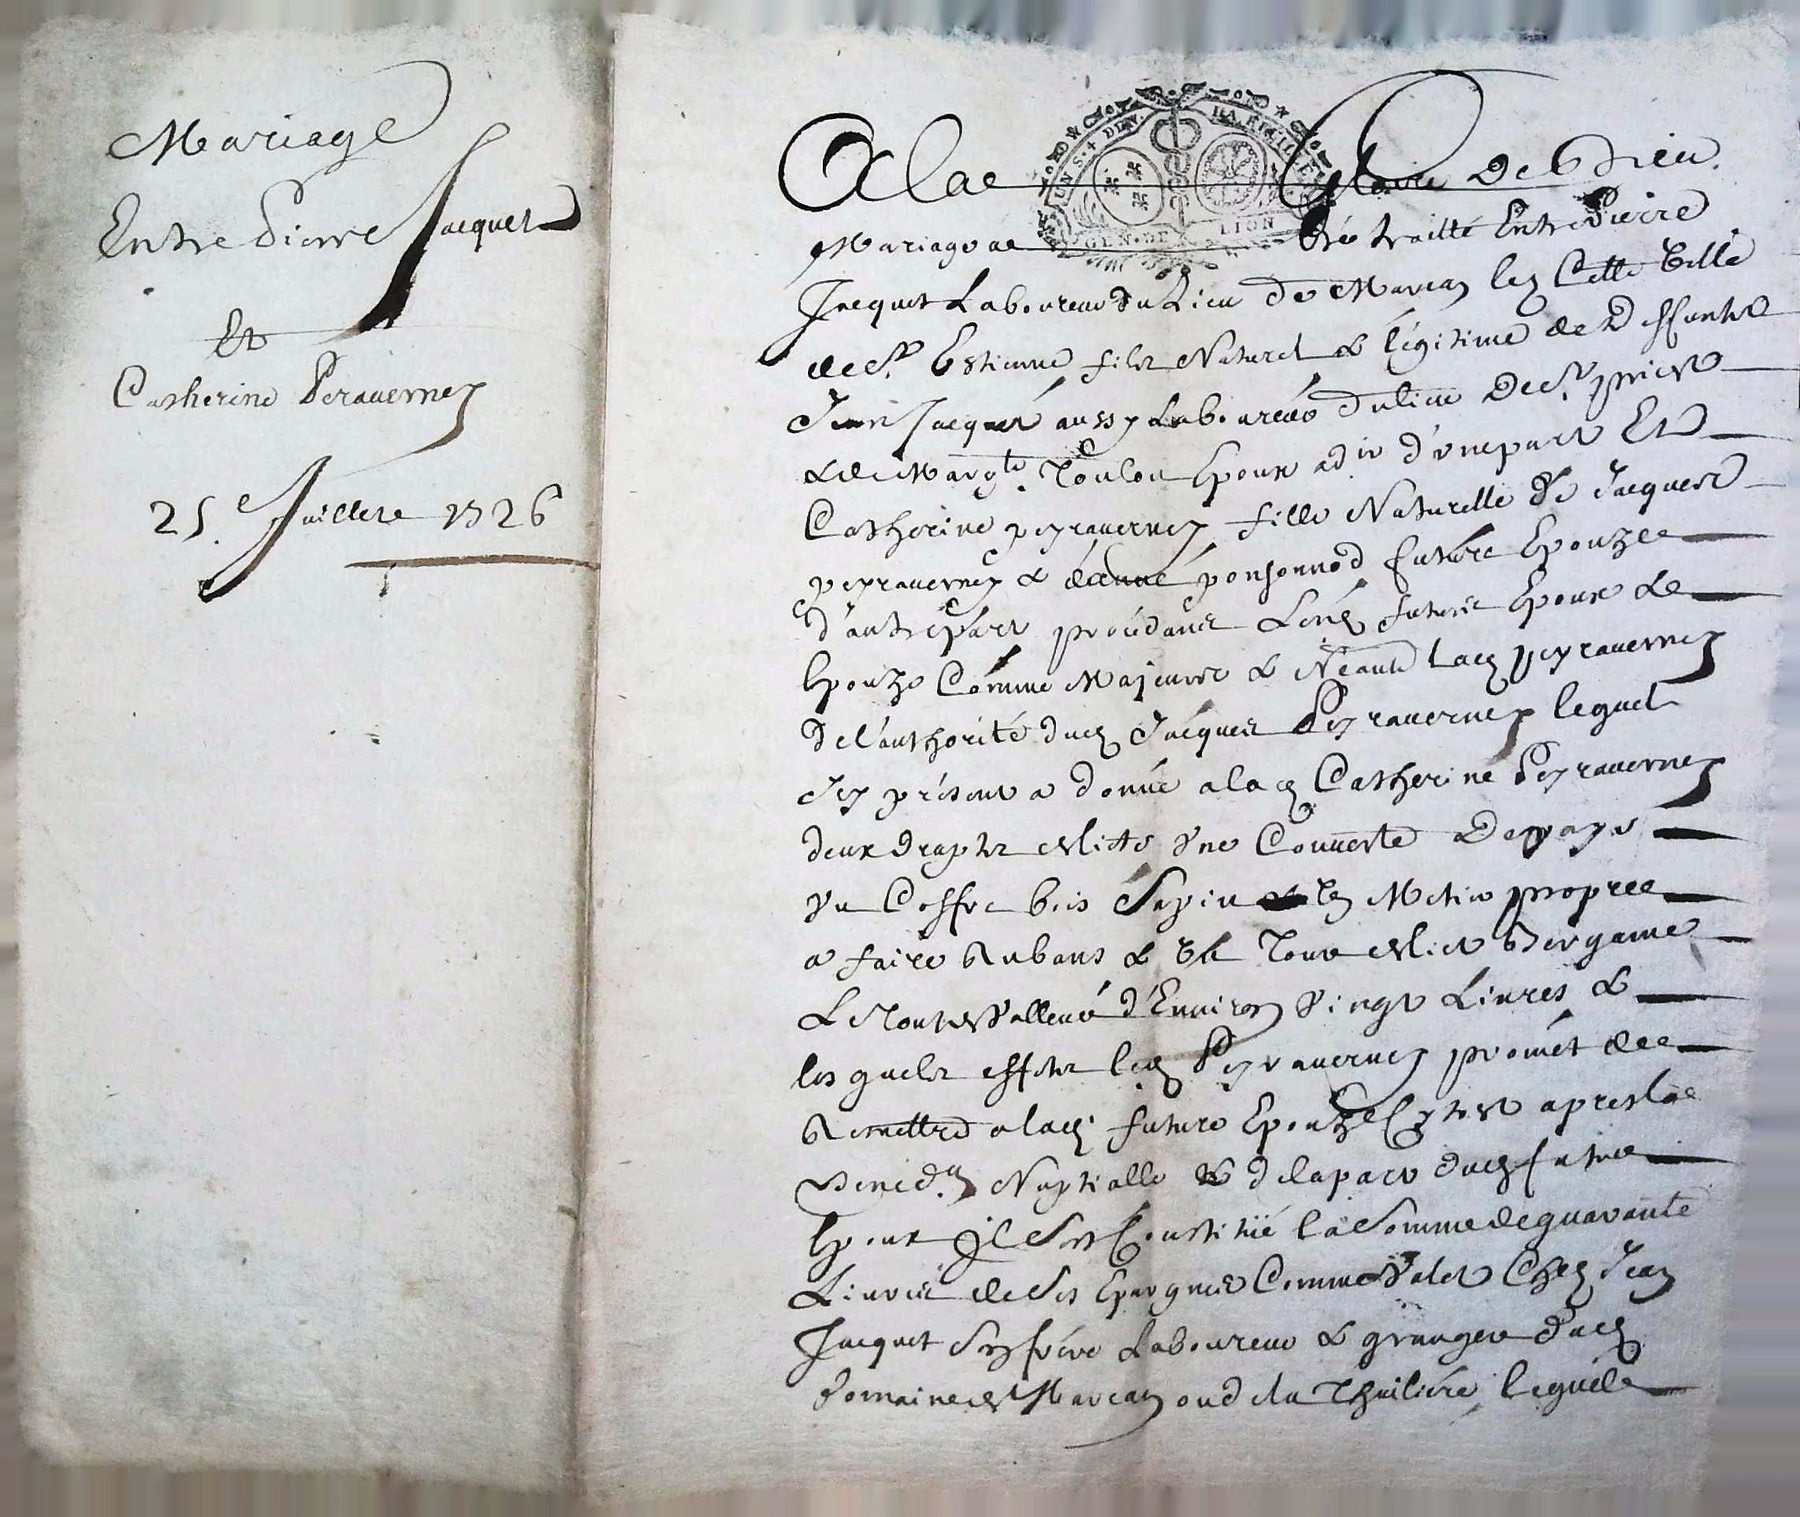 Mariage
Entre Pierre Jacquet
Et
Catherine Peyraverney
25.e Juillere 1726
A la Gloire De Dieu.
UN S. 4 DEN. LA FEUILLE
GEN. DE LION
Mariage a été traitté Entre Pierre
Jacquet Laboureur du Lieu de Marcan lez Cette Ville
de St. Estienne fils Naturel & légitime de deffunts
Jean Jacquet aussy Laboureur du lieu de St. priest
& de Margte. Toulon Epoux a dir d'une part Et
Catherine peyraverney fille Naturelle de Jacques
peyraverney & d'anne ponsonnod future Epouzee
d'autre part procédans Lesd. futurs Epoux &
Epouze Comme Majeurs & Néant lad. peyraverney
De l'authorité dud. Jacques Peyraverney lequel
Icy présent a donné a lad. Catherine Peyraverney
deux draps de lict une Couverte de pays
un Coffre bois Sapin les Metier propre
a faire Rubans & un Tour de lict Bergame
Le tout de valleur d'Environ vingt Livres &
lesquels effets led. Peyraverney promet de
Remettre a lad. future Epouze après la
Bened.on Nuptialle & de la part dud. futur
Epoux Il S'est Constitué la Somme de quarante
Livres de Ses Epargnes Comme Valet Chez Jean
Jacquet Son frère Laboureur & granger dud.
Domaine de Marcan ou de la Thuilière lequel